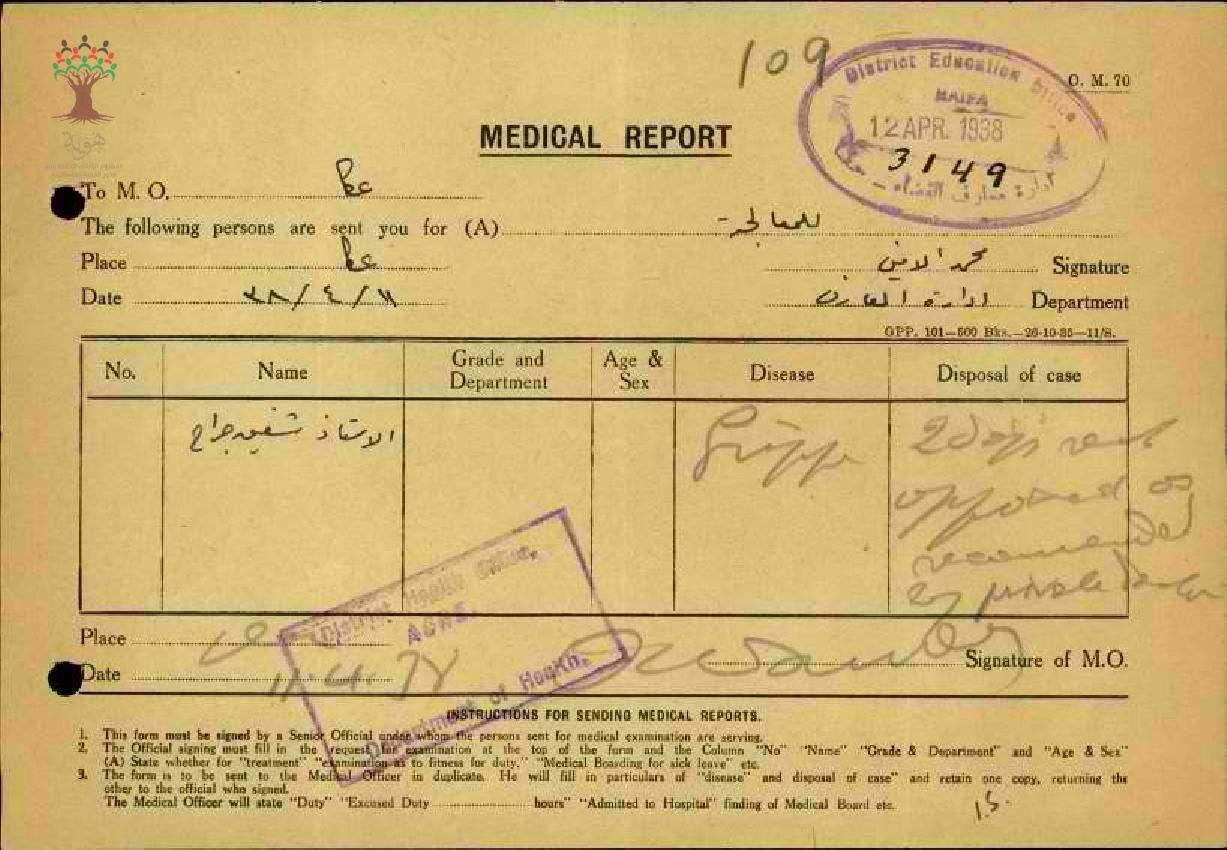 109
District Education Office
HAIFA
12 APR. 1938
3149
ادارة معارف القضاء – حيفا
O. M. 70
هوية
MEDICAL REPORT
To M. O. عكا
The following persons are sent you for (A) للمعالجة
Place عكا
محمد الامين Signature
Date ٣٨/٤/١١
ادارة المعارف Department
GPP. 101—500 Bks.—26-10-35—11/8.
No. Name Grade and Department Age & Sex Disease Disposal of case
الاستاذ شفيق جراح Grippe 2 days rest
approved as
recommended
by private doctor
District Health Office,
ACRE.
Department of Health.
Place
Signature of M.O.
Date 11.4.38
INSTRUCTIONS FOR SENDING MEDICAL REPORTS.
1. This form must be signed by a Senior Official under whom the persons sent for medical examination are serving.
2. The Official signing must fill in the request for examination at the top of the form and the Column "No" "Name" "Grade & Department" and "Age & Sex"
(A) State whether for "treatment" "examination as to fitness for duty." "Medical Boarding for sick leave" etc.
3. The form is to be sent to the Medical Officer in duplicate. He will fill in particulars of "disease" and disposal of case" and retain one copy, returning the
other to the official who signed.
The Medical Officer will state "Duty" "Excused Duty ........................ hours" "Admitted to Hospital" finding of Medical Board etc.